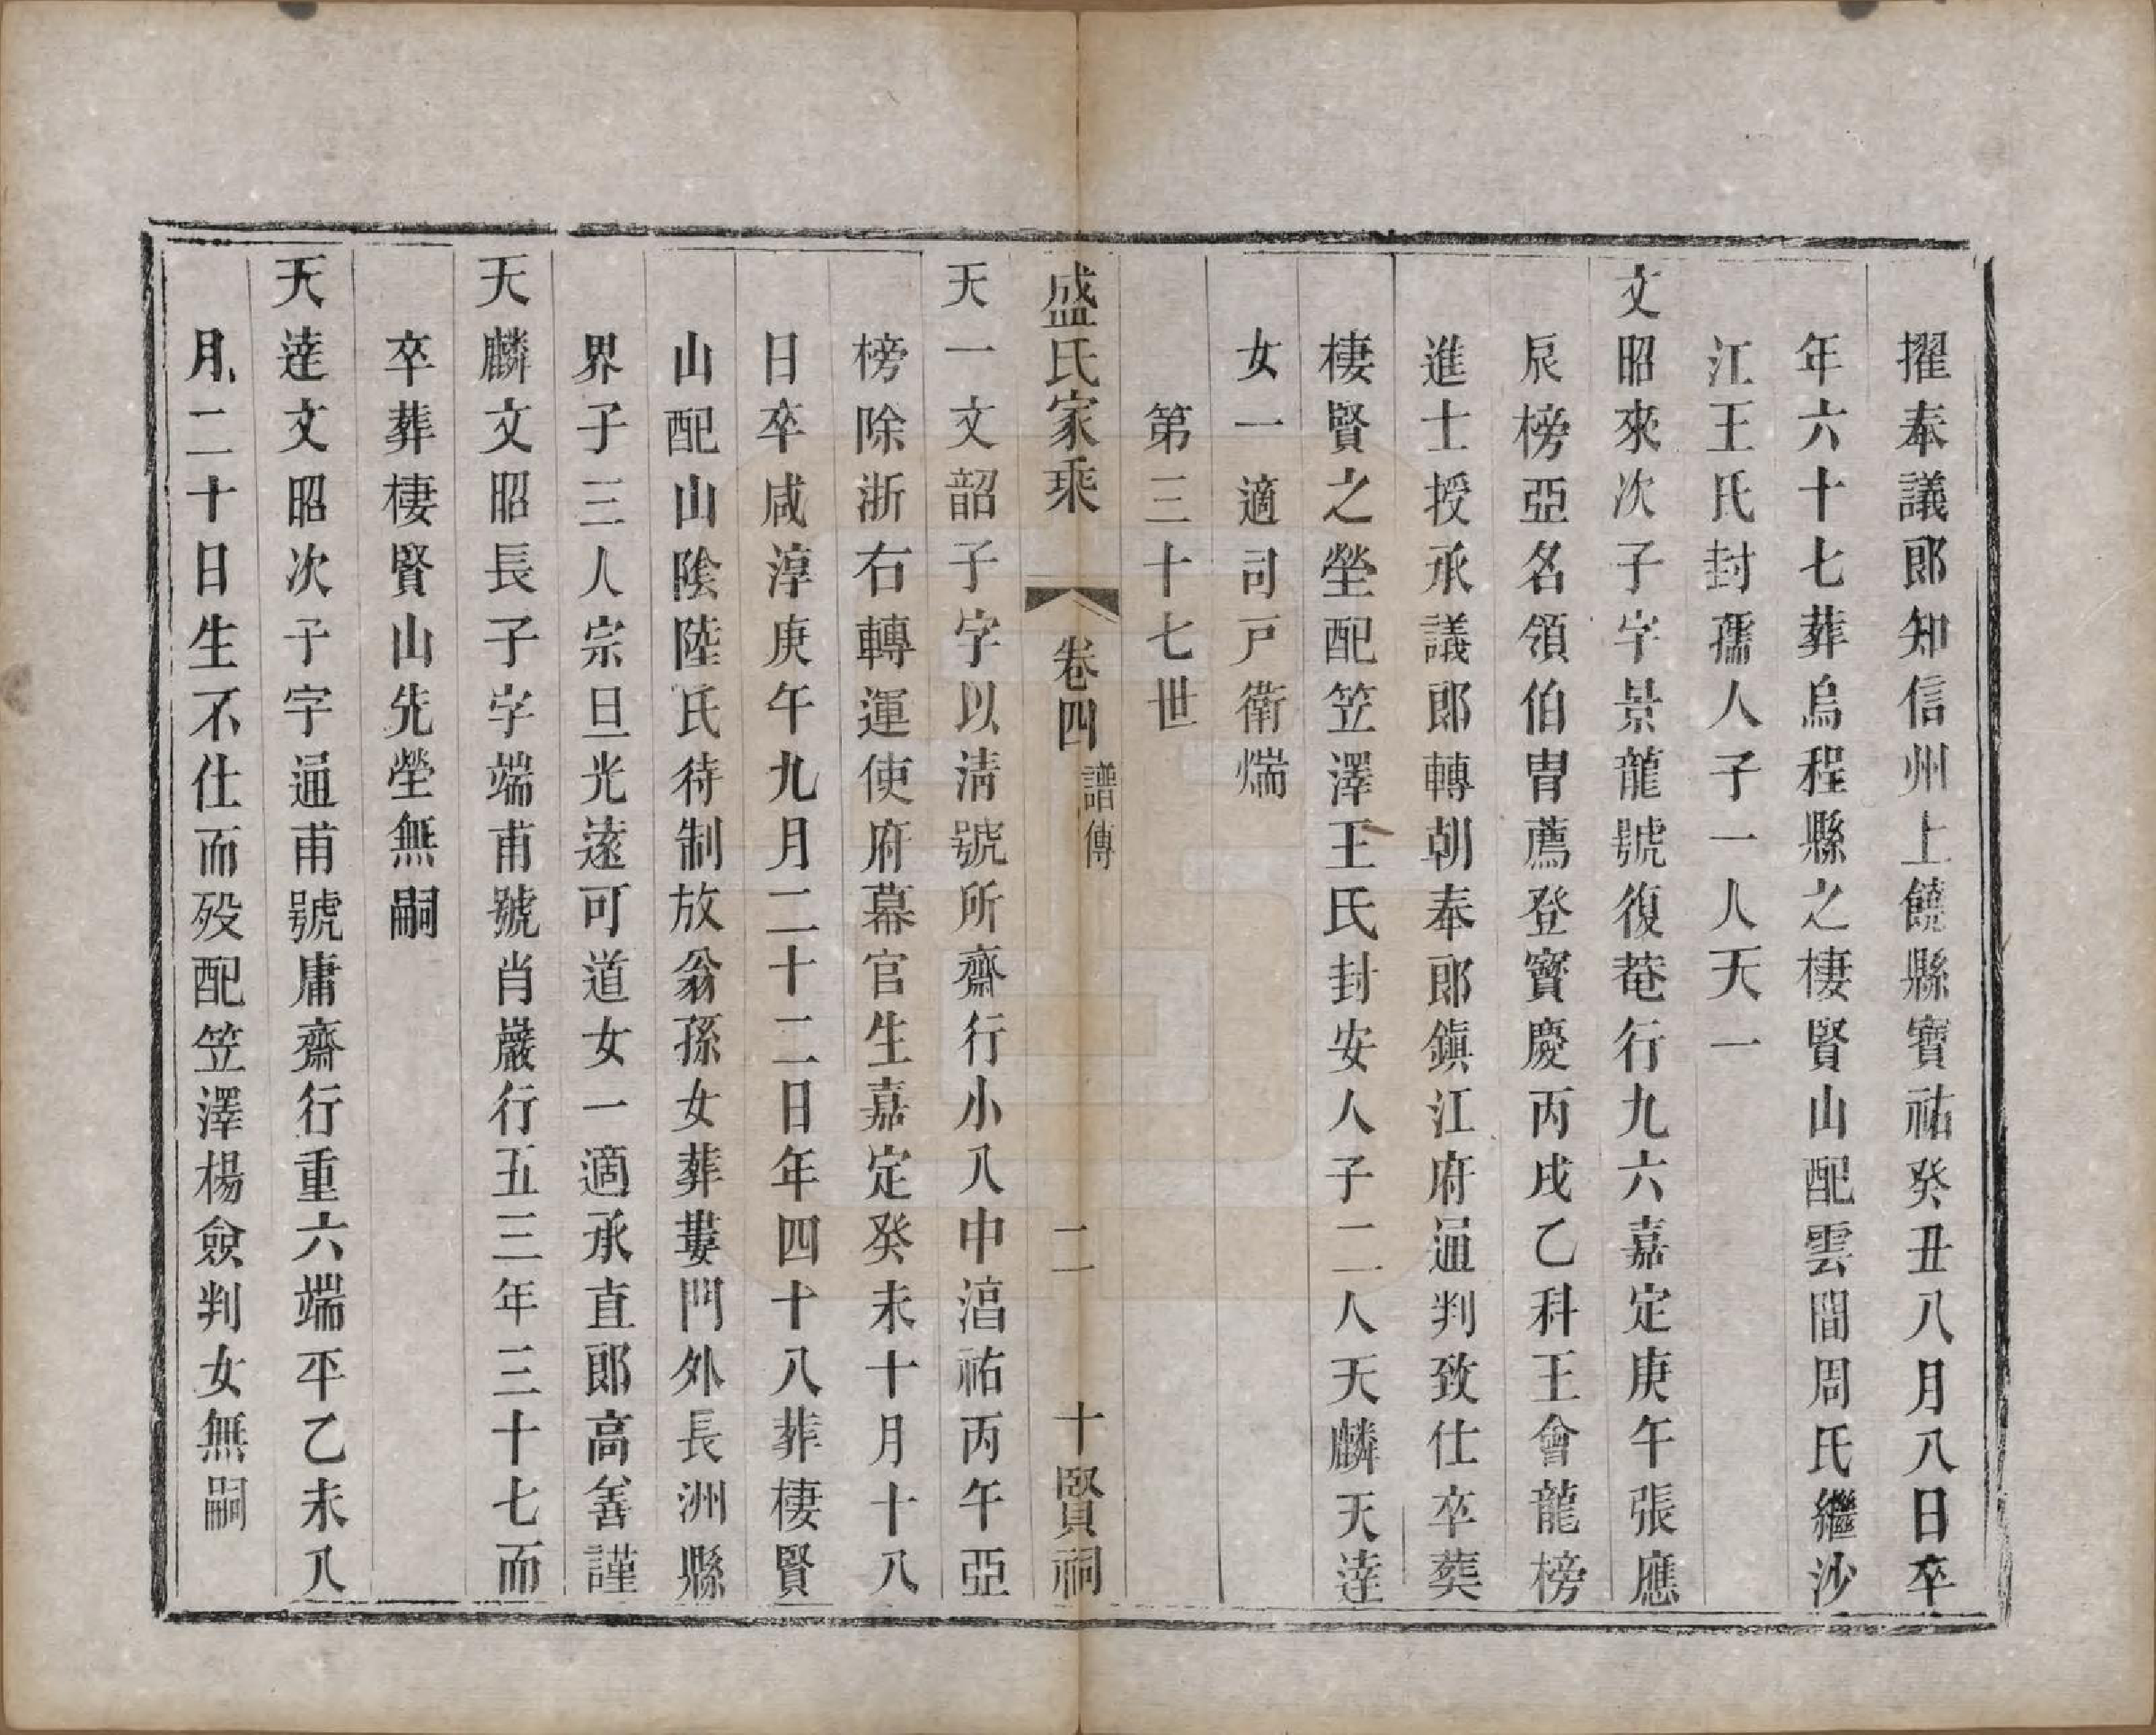 擢奉議郎知信州上饒縣寶祐癸丑八月八日卒
年六十七葬烏程縣之棲賢山配雲間周氏繼沙
江王氏封孺人子一人天一
文昭來次子字景龍號復菴行九六嘉定庚午張應
辰榜亞名領伯胄薦登寶慶丙戌乙科王會龍榜
進士授承議郎轉朝奉郎鎮江府通判致仕卒葬
棲賢之塋配笠澤王氏封安人子二人天麟天達
女一適司戸衛煓
第三十七世
盛氏家乘 卷四 譜傳 二 十賢祠
天一文韶子字以清號所齋行小八中淳祐丙午亞
榜除浙右轉運使府幕官生嘉定癸未十月十八
日卒咸淳庚午九月二十二日年四十八葬棲賢
山配山陰陸氏待制放翁孫女葬婁門外長洲縣
界子三人宗旦光遠可道女一適承直郎高善謹
天麟文昭長子字端甫號肖巖行五三年三十七而
卒葬棲賢山先塋無嗣
天達文昭次子字通甫號庸齋行重六端平乙未八
月二十日生不仕而歿配笠澤楊僉判女無嗣